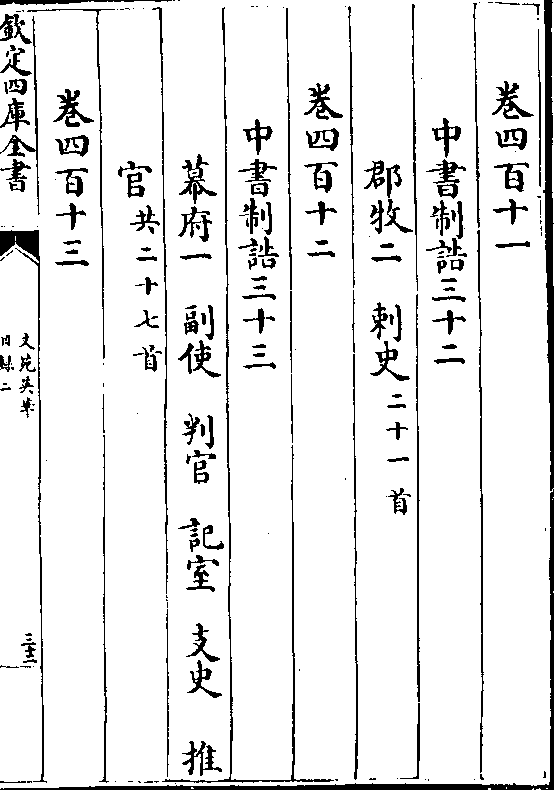 卷四百十一
中書制誥三十二
郡牧二 刺史二十一首
卷四百十二
中書制誥三十三
幕府一 副使 判官 記室 支史 推
官共二十七首
卷四百十三
欽定四庫全書
文苑英華
目録二
三十二